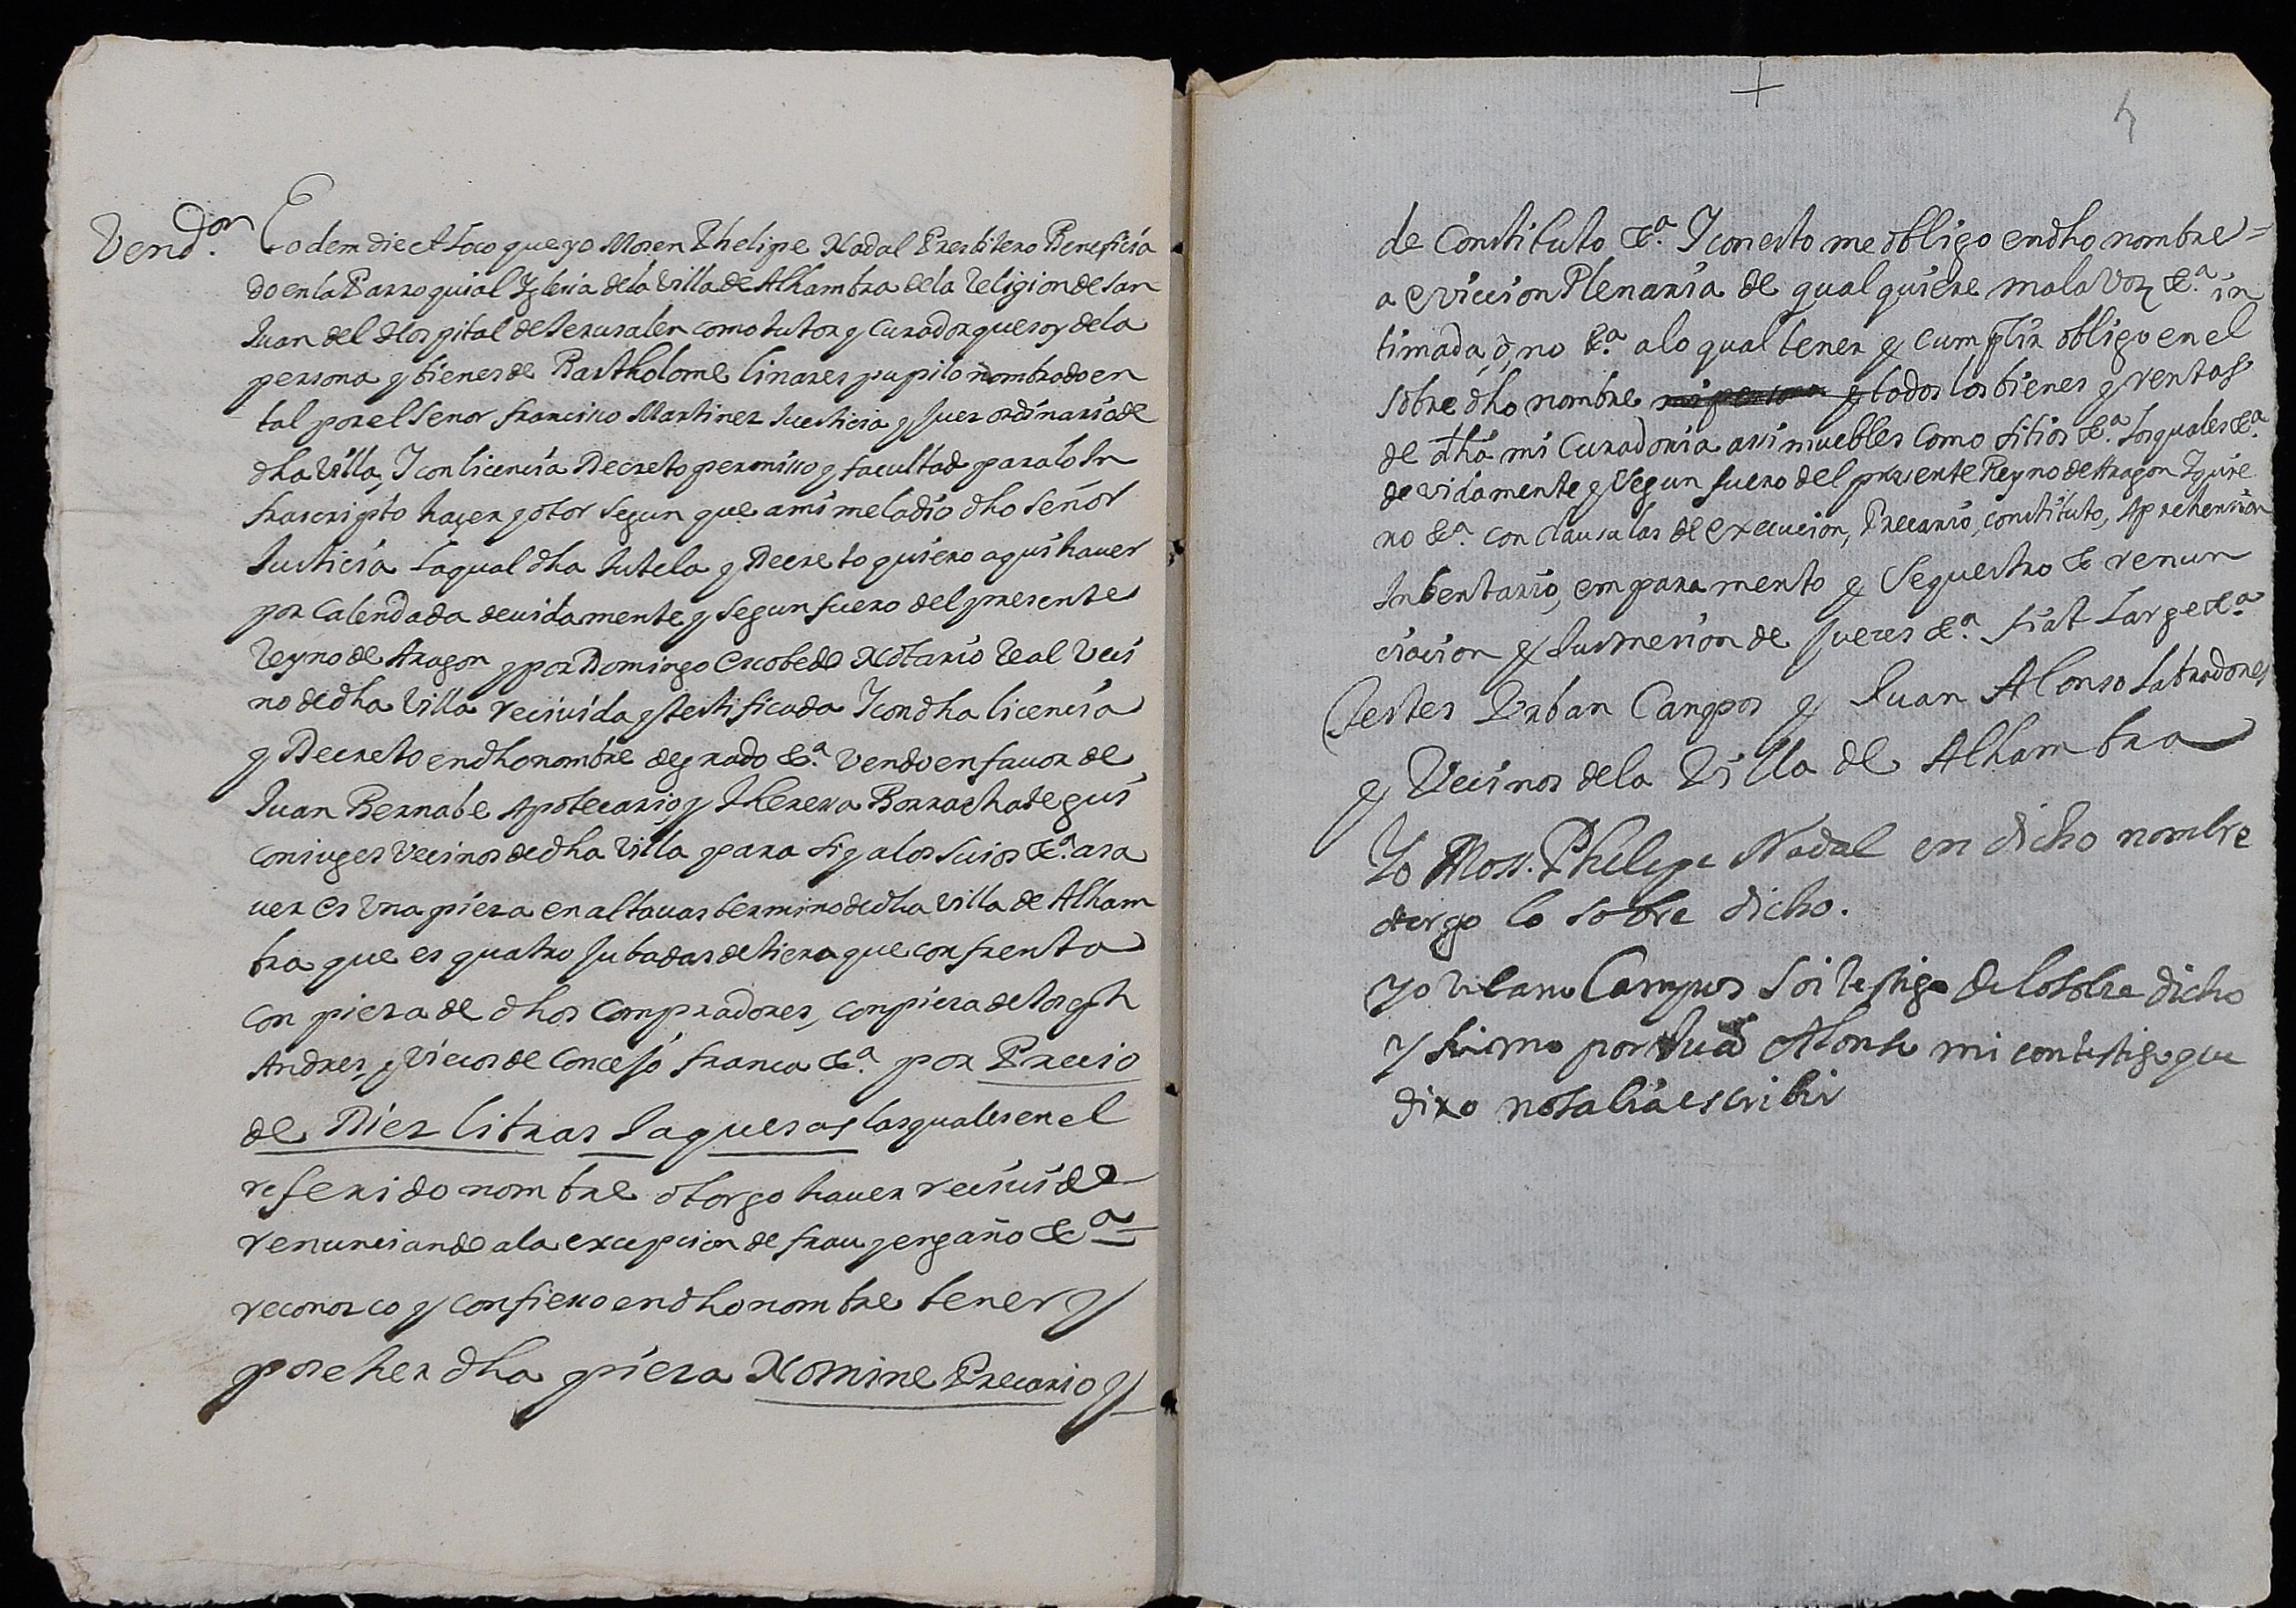 Vend.on Eodem die et Loco que yo Mosen Phelipe Nadal Presbitero Beneficia
do en la Parroquial Yglesia de la Villa de Alhambra de la Religion de San
Juan del Hospital de Jerusalen como tutor y Curador que soy de la
persona y bienes de Bartholome linares pupilo nombrado en
tal por el Senor francisco Martinez Justicia y Juez ordinario de
dha Villa, Y con licencia Decreto permisso y facultad para lo In
frascripto haçer y otor segun que a mi me la dio dho Señor
Justicia La qual dha tutela y Decreto quiero aqui hauer
por Calendada deuidamente y segun fuero del presente
Reyno de Aragon y por Domingo Escobedo Notario Real Veci
no de dha Villa reciuida y testificada Y con dha licencia
y Decreto en dho nombre de grado &.a vendo en fauor de
Juan Bernabe Apotecario, y Theresa Borrachategui
Coniuges Vecinos de dha Villa para si y a los suios &.a asa
uer es Vna pieza en altauas termino de dha Villa de Alham
bra que es quatro Jubadas de tiera que confrenta
con pieza de dhos Compradores, con pieza de Joseph
Andres, y Viecos de Concejo franca &.a por Precio
de Diez libras Jaquesas las quales en el
referido nombre otorgo hauer reciuido
renunciando a la excepcion de frau y engaño &.a
reconozco y confiesso en dho nombre tener y
posseher dha pieza Nomine Precario y
de Constituto &.a Y con esto me obligo en dho nombre
a eviccion Plenaria de qual quiere mala voz &.a in
timada, o, no &.a a lo qual tener y cumplir obligo en el
sobre dho nombre mi persona y todos los bienes y rentas
de dha mi Curadoria assi muebles como sitios &.a Los quales &.a
devidamente y segun fuero del presente Reyno de Aragon Y quie
ro &.a con clausulas de execucion, Precario, constituto, Aprehension
Inbentario, emparamento y Sequestro & renun
ciacion y Susmesion de Jueces &.a fiat Large &.a
Testes Urban Campos y Juan Alonso Labradores
y Vecinos de la Villa de Alhambra
Yo Moss. Phelipe Nadal en dicho nombre
otorgo lo sobre dicho.
yo urbano Campos soi testigo de lo sobre dicho
y firmo por Juan Alonso mi contestigo que
dixo no sabia escribir